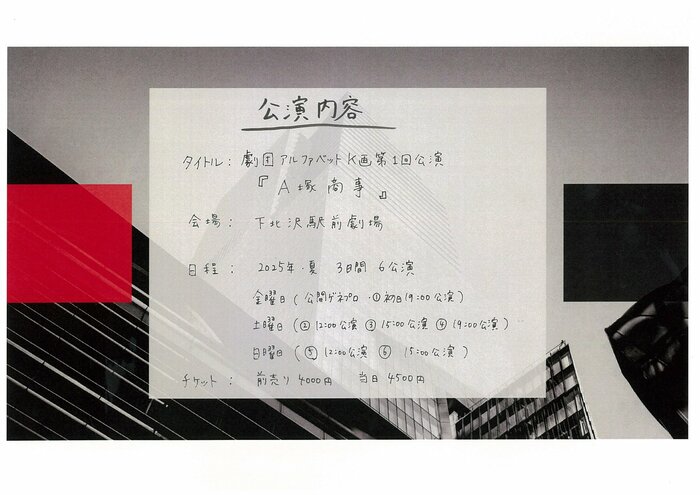 公演内容
タイトル: 劇団アルファベットK画第1回公演
『A塚商事』
会場: 下北沢駅前劇場
日程: 2025年・夏 3日間 6公演
金曜日(公開ゲネプロ・①初日19:00公演)
土曜日(②12:00公演 ③15:00公演 ④19:00公演)
日曜日(⑤12:00公演 ⑥15:00公演)
チケット: 前売り4000円 当日4500円